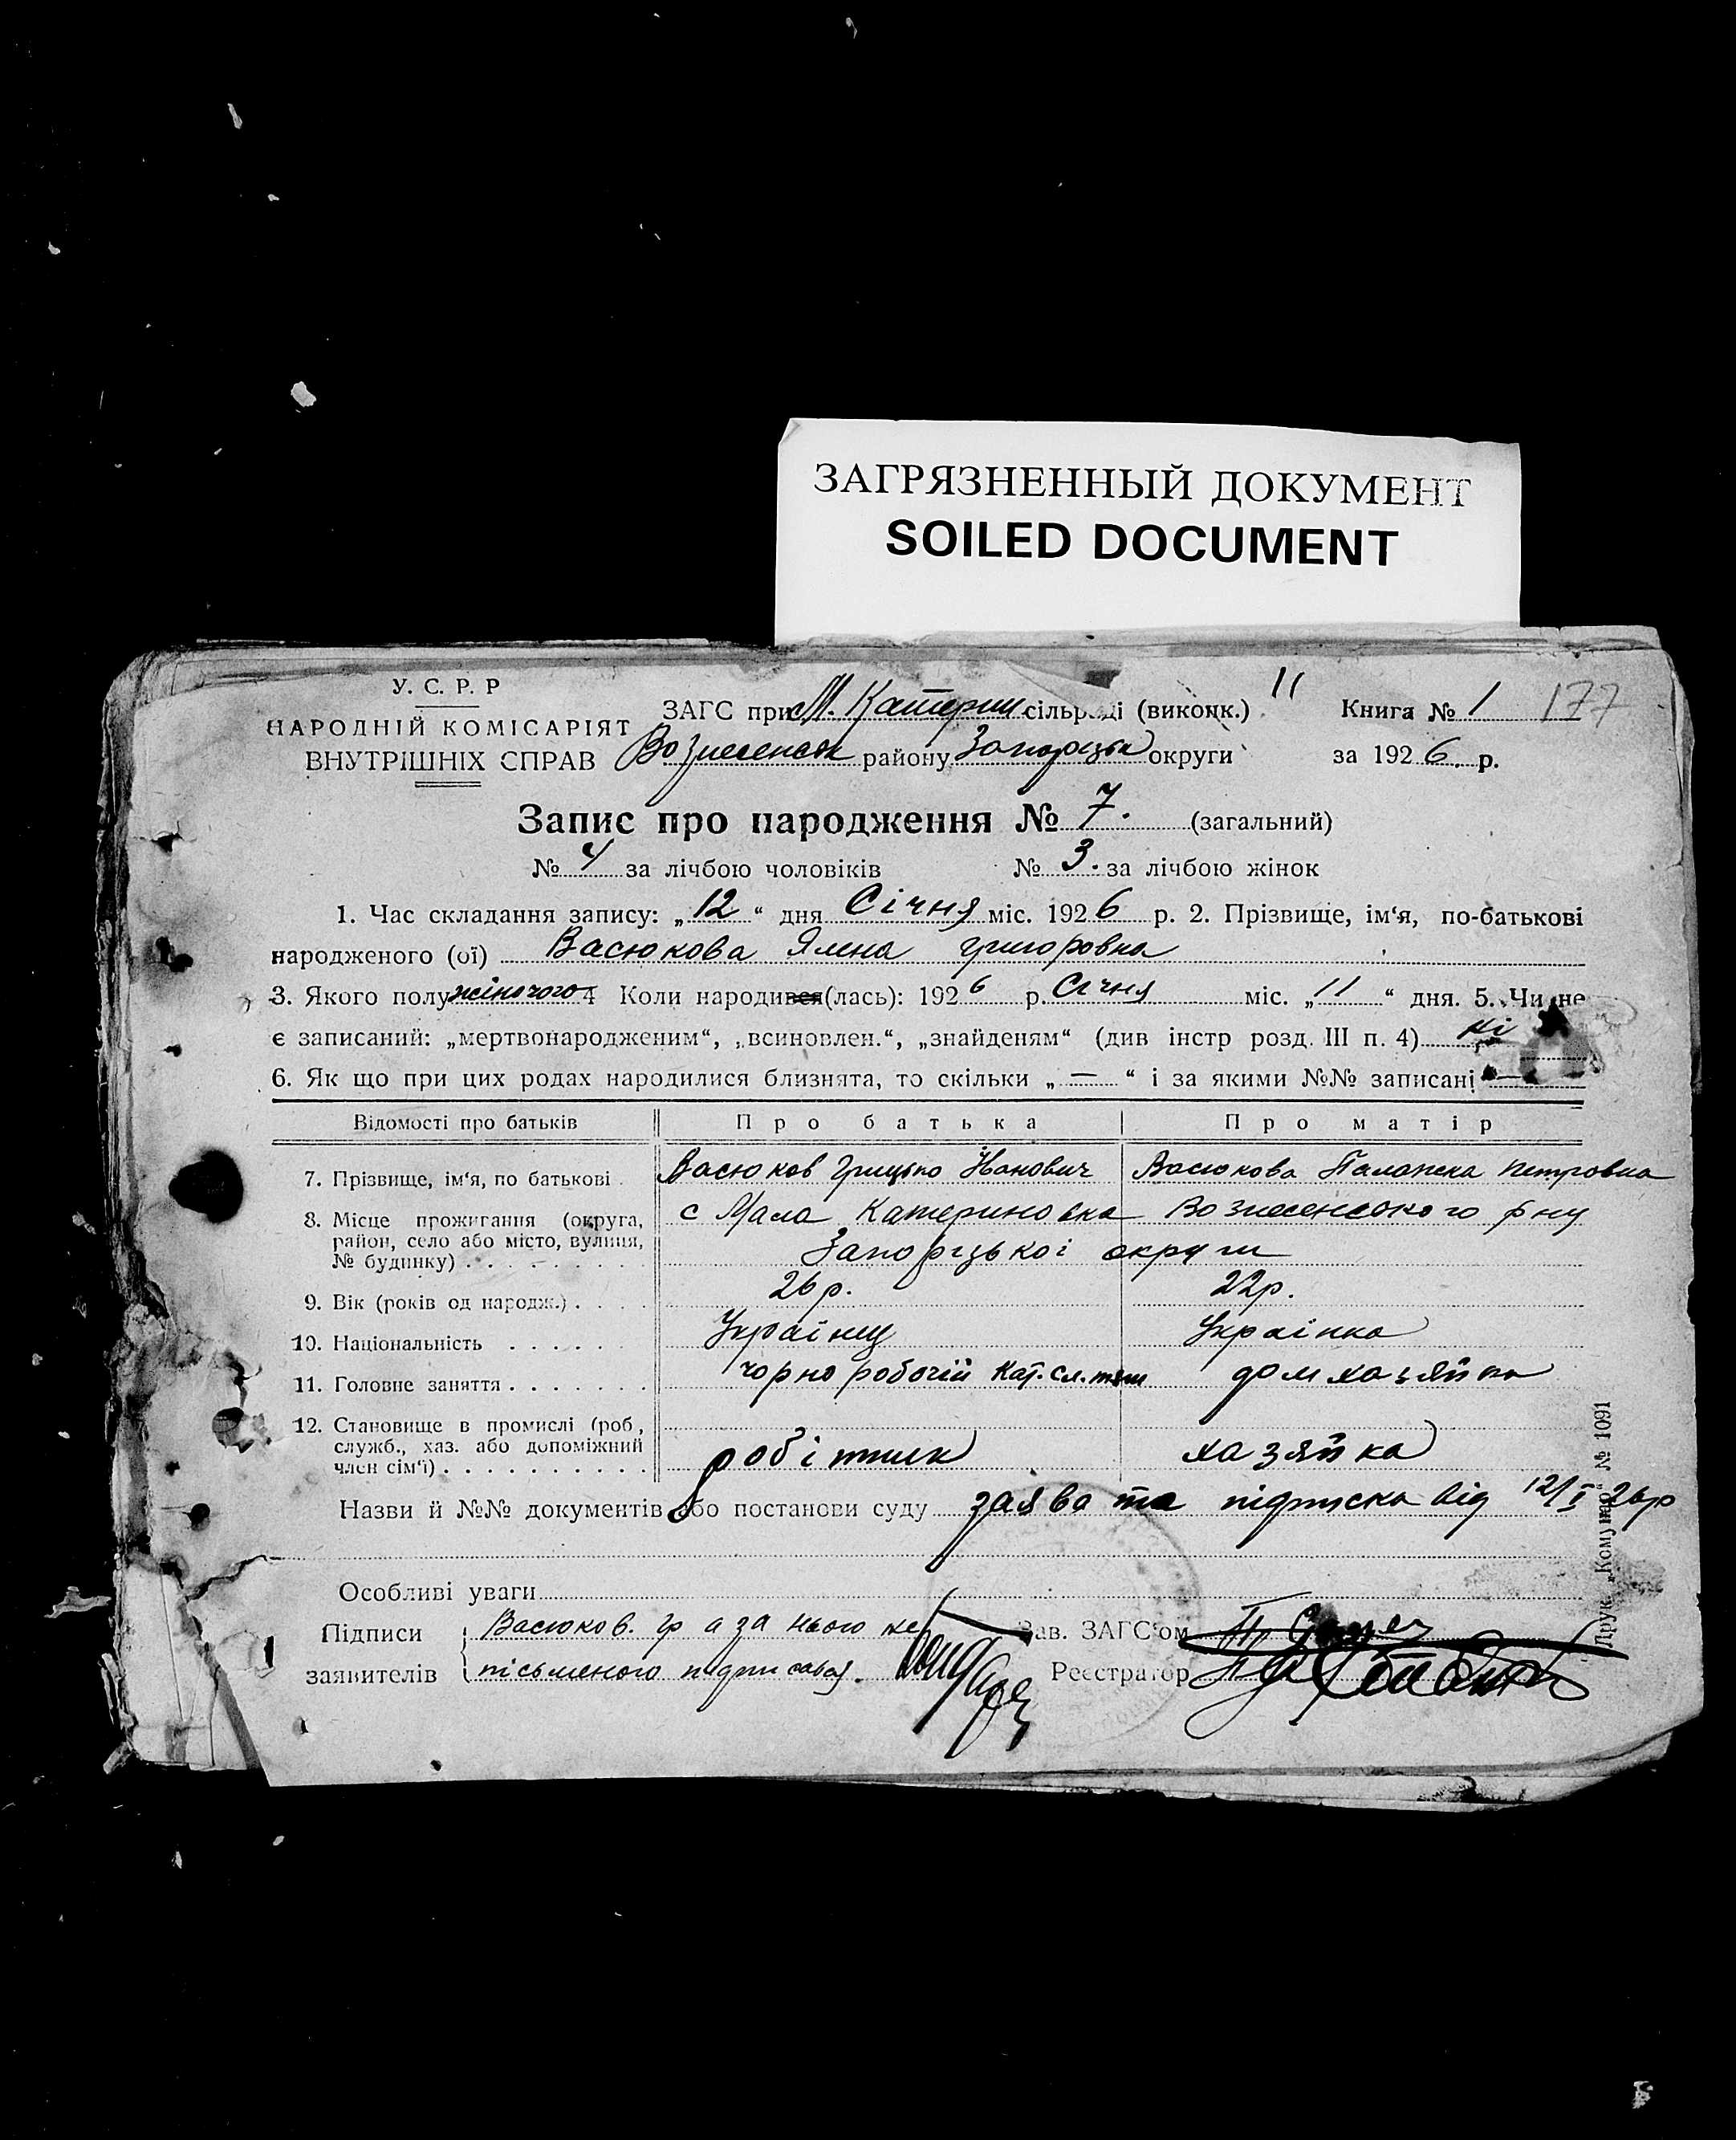 ЗАГРЯЗНЕННЫЙ ДОКУМЕНТ
SOILED DOCUMENT
У. С. Р. Р
НАРОДНІЙ КОМІСАРІЯТ
ВНУТРІШНІХ СПРАВ
ЗАГС при М. Катерин сільраді (виконк.) 11
Книга № 1 177
Вознесенськ району Запорізька округи
за 1926. р.
Запис про народження № 7. (загальний)
№ 4 за лічбою чоловіків № 3. за лічбою жінок
1. Час складання запису: „12“ дня Січня міс. 1926 р. 2. Прізвище, ім‘я, по-батькові
народженого (ої) Васюкова Ялена Григоровна
3. Якого полу жіночого 4 Коли народився (лась): 1926 р. Січня міс. „11“ дня. 5. Чи не
є записаний: „мертвонародженим“, „всиновлен.“, „знайденям“ (див інстр розд. III п. 4) ні
6. Як що при цих родах народилися близнята, то скільки „—“ і за якими №№ записані —
Відомості про батьків Про батька Про матір
7. Прізвище, ім‘я, по батькові Васюков Грицько Іванович Васюкова Палажка Петровна
8. Місце прожигання (округа, район, село або місто, вулиця, № будинку) с Мала Катериновка Вознесенсокого рну
Запорізької округи
9. Вік (років од народж.) 26р. 22р.
10. Національність Українец Українка
11. Головне заняття чорноробочій Кат. сл. домхазяйка
12. Становище в промислі (роб, служб., хаз. або допоміжний член сім‘ї) робітник хазяйка
Назви й №№ документів або постанови суду заява та підписка від 12/I 26р
Особливі уваги
Підписи заявителів Васюков. Гр а за нього не
письменого підписався.
Зав. ЗАГС‘ом
Реєстратор
Друк. „Комунар“ № 1091